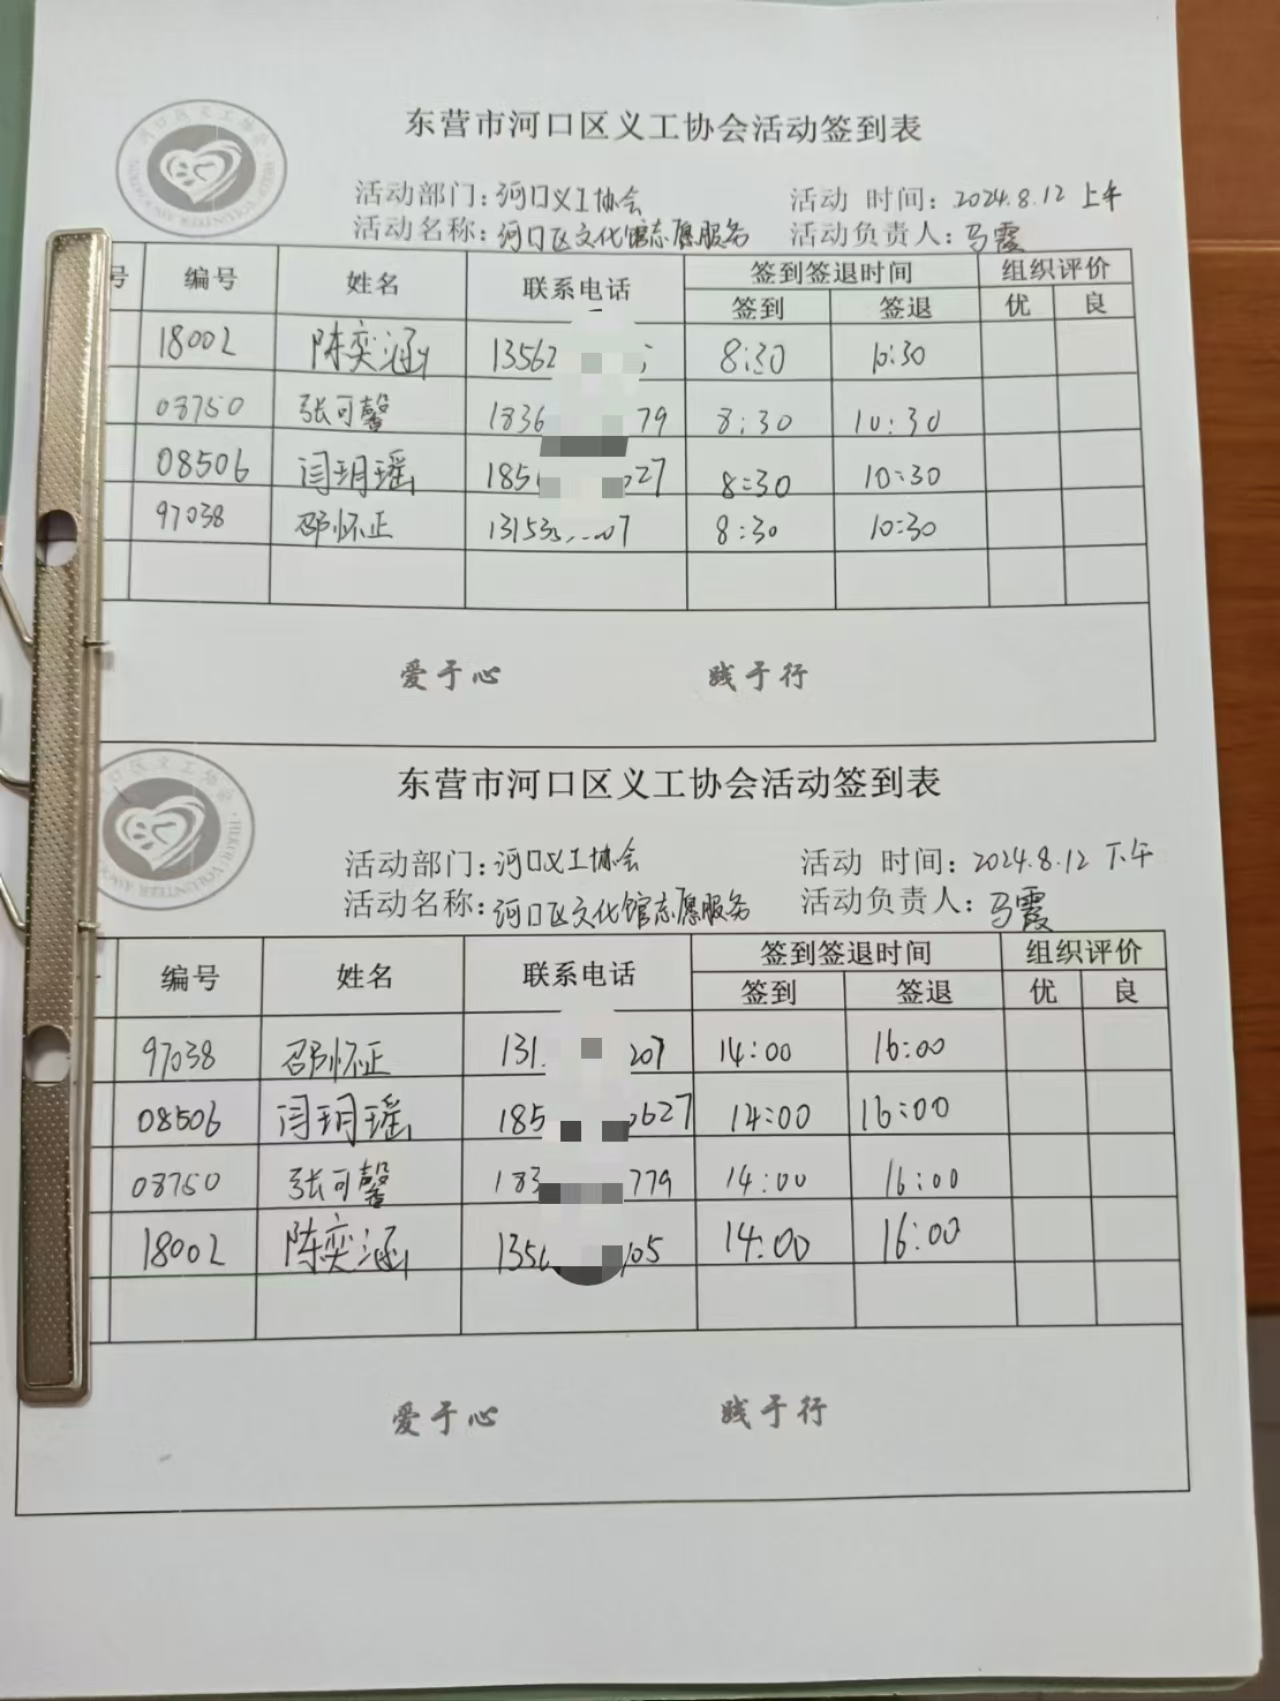 东营市河口区义工协会活动签到表
活动部门：河口义工协会 活动 时间：2024.8.12 上午
活动名称：河口区文化馆志愿服务 活动负责人：马霞
号 编号 姓名 联系电话 签到签退时间 组织评价
签到 签退 优 良
18002 陈奕涵 13562 8:30 10:30
08750 张可馨 1836 79 8:30 10:30
08506 闫玥瑶 185 27 8:30 10:30
97038 邵怀正 13153 07 8:30 10:30
爱于心 践于行
东营市河口区义工协会活动签到表
活动部门：河口义工协会 活动 时间：2024.8.12 下午
活动名称：河口区文化馆志愿服务 活动负责人：马霞
编号 姓名 联系电话 签到签退时间 组织评价
签到 签退 优 良
97038 邵怀正 131 207 14:00 16:00
08506 闫玥瑶 185 0627 14:00 16:00
08750 张可馨 183 779 14:00 16:00
18002 陈奕涵 135 05 14:00 16:00
爱于心 践于行